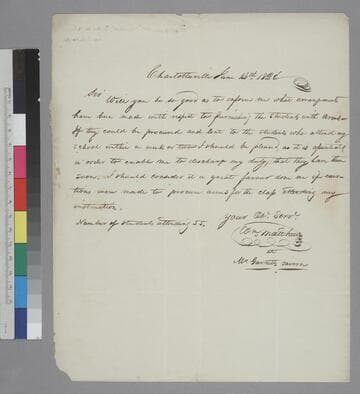 Charlottesville June 14th 1826
Sir
Will you be so good as to inform me what arrangements
have been made with respect to furnishing the Students with Arms
If they could be procured and sent to the students who attend my
school within a week or two I should be pleased as it is essential
in order to enable me to discharge my duty, that they have them
soon; I should consider it a great favour done me if exer-
tions were made to procure arms for the class attending my
instruction.
Number of students attending 55.
your Obt. Servt.
Wm Matthews
at
Mr. tavern